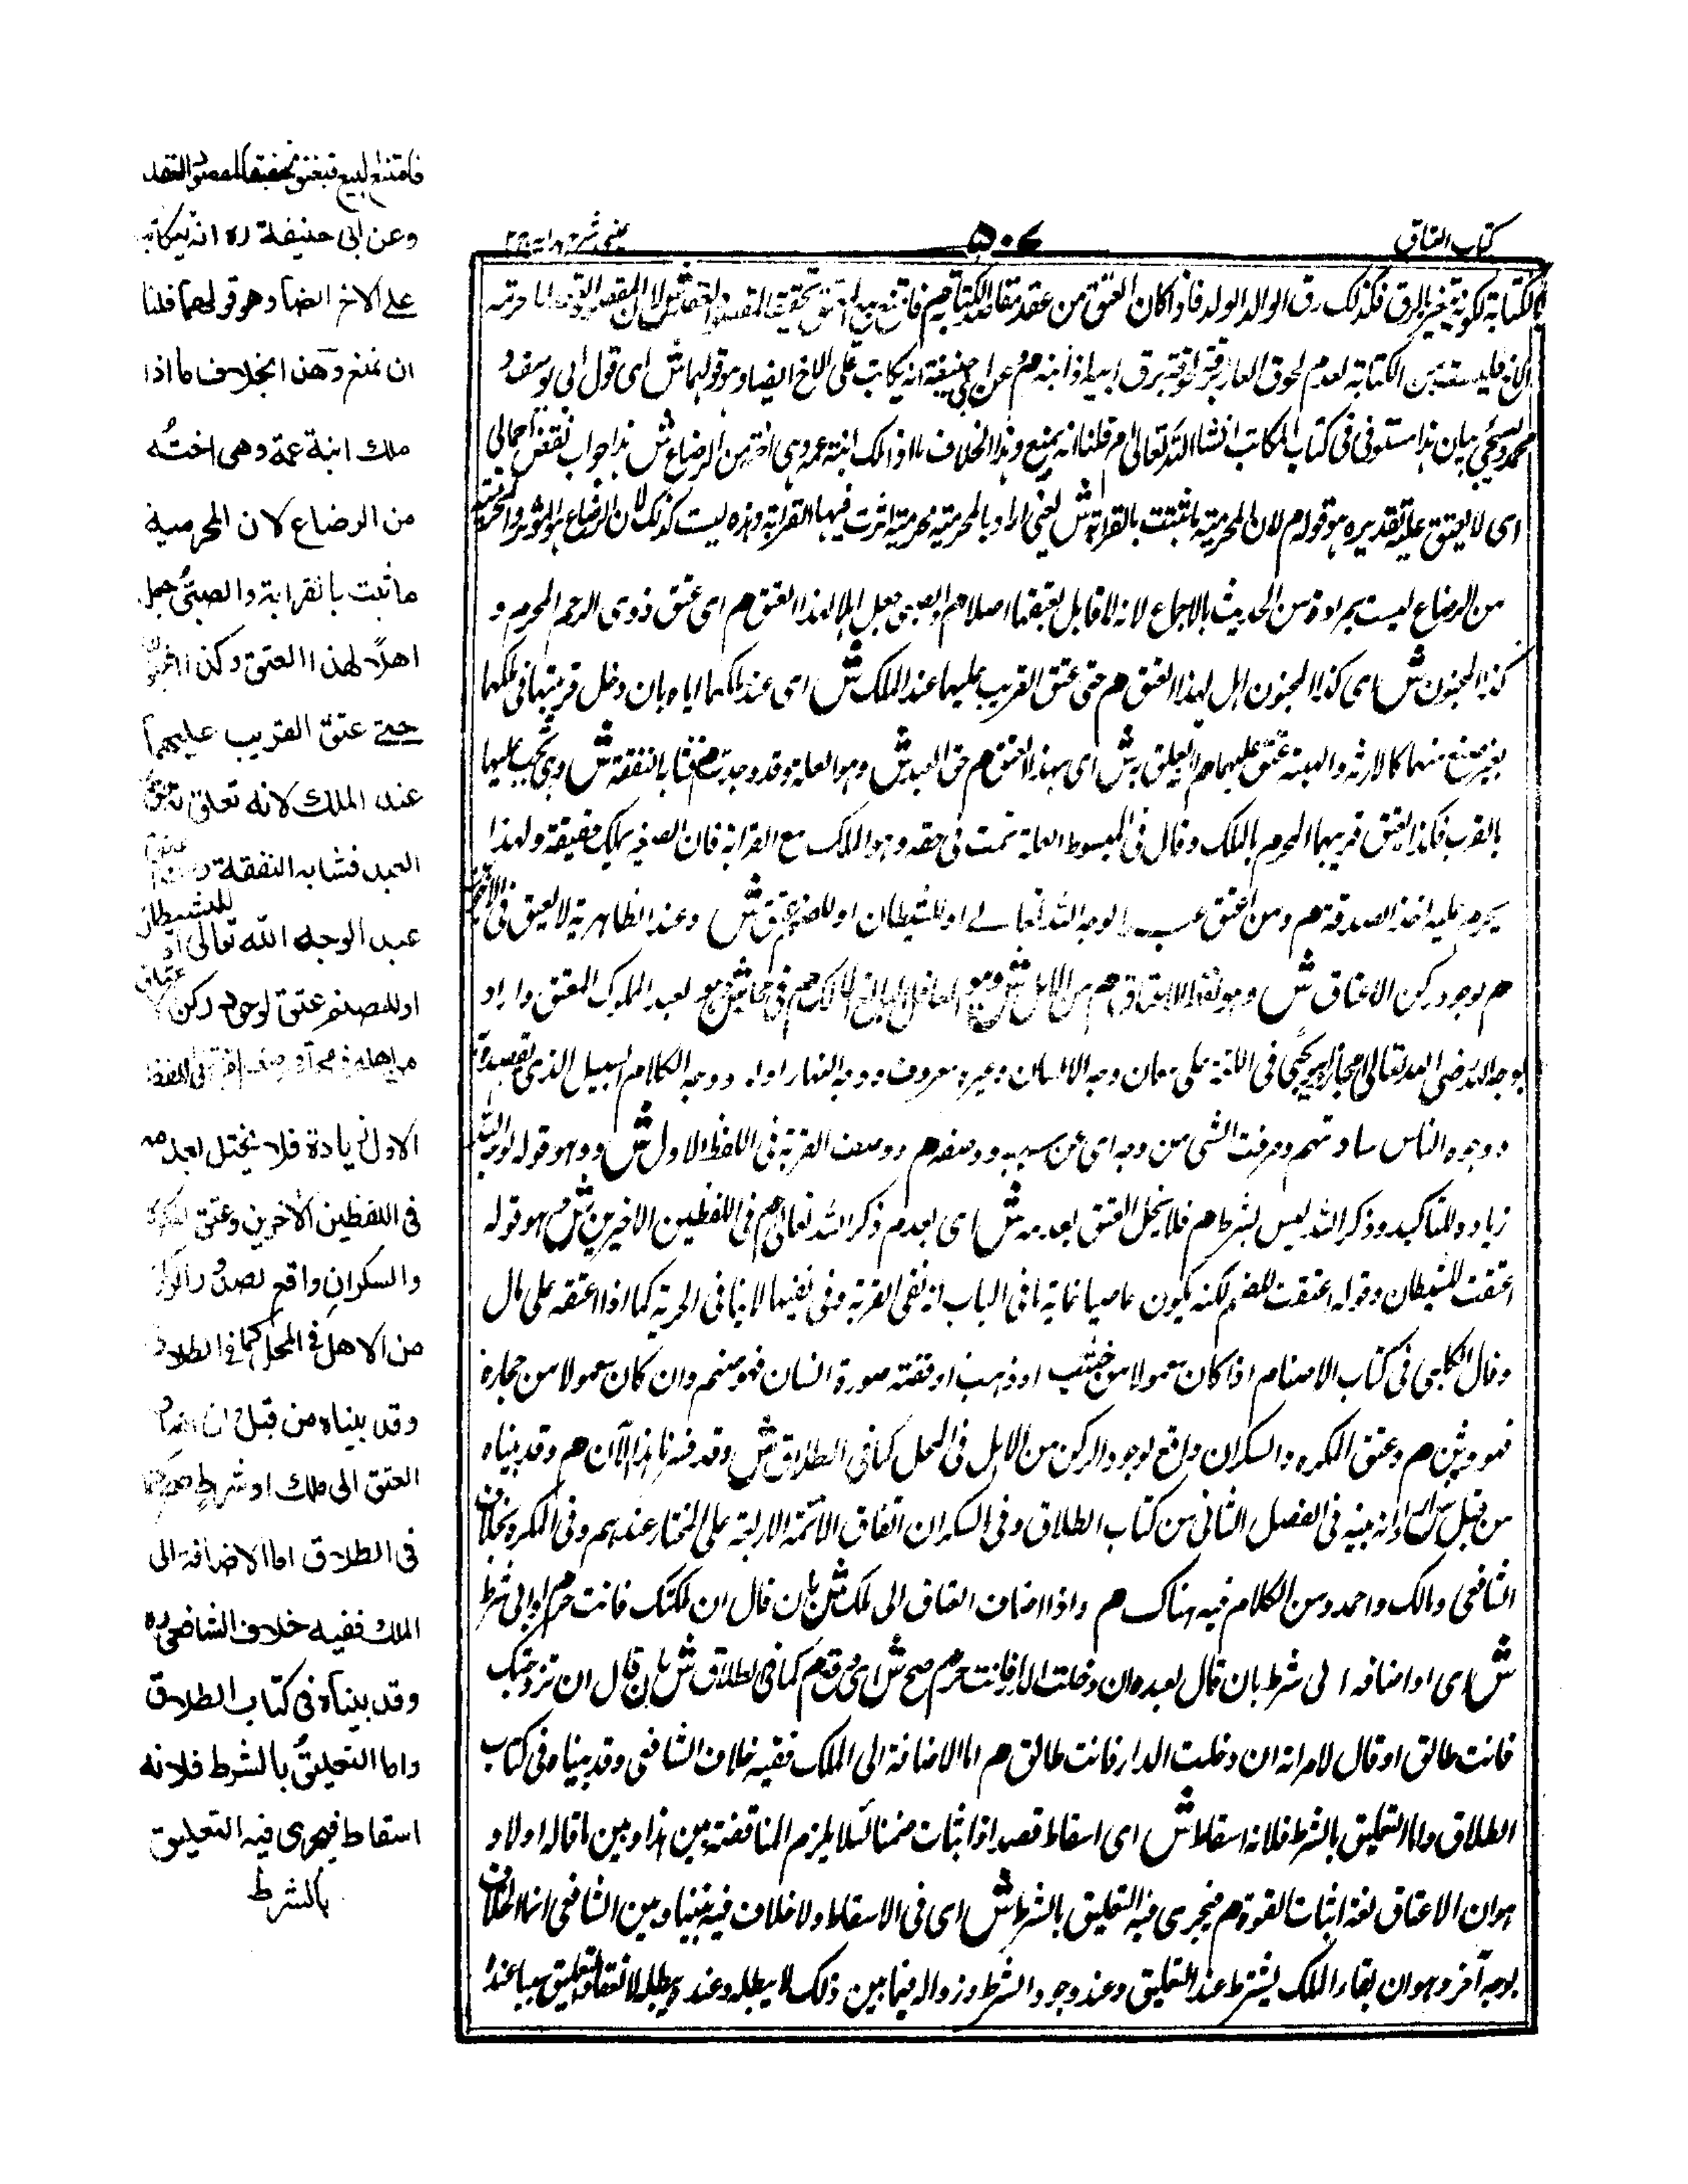 كتاب العتاق
۵۰۶
عینی شرح ہدایہ
بالكتابة لكونه يتغير بالرق فكذلك رق الوالد والولد فاذا كان العتق من عقد مقاصد الكتابة م فامتنع البيع فيعتق تحقيقا لمقصود العقد ش لان المقصود اما حرمة
الاخ فليست من الكتابة لعدم لحوق العار برقه لحوقه برق ابيه او ابنه م وعن ابي حنيفة انه يكاتب على الاخ ايضا وهو قولهما ش اى قول ابى يوسف و
محمد وسيجئ بيان هذا مستوفى فى كتاب المكاتب انشاء الله تعالى م قلنا ان نمنع وهذا بخلاف ما اذا ملك ابنة عمه وهى اخته من الرضاع ش هذا جواب نقض اجمالى
اى لا يعتق عليه تقديره هو قوله م لان المحرمية ما ثبتت بالقرابة ش يعنى اراد بالمحرمية محرمية اثرت فيها القرابة وهذه ليست كذلك لان الرضاع هو المؤثر والمحرمية
من الرضاع ليست بمرادة من الحديث بالاجماع لانه لا قائل بعتقها اصلا م والصبى جعل اهلا لهذا العتق م اى عتق ذوى الرحم المحرم و
كذا المجنون ش اى كذا المجنون اهل لهذا العتق م حتى عتق القريب عليهما عند الملك ش اى عند ملكهما اياه بان دخل قريبهما فى ملكهما
بغير صنع منهما كالارث والهبة عتق عليهما م لانه تعلق به ش اى بهذا العتق م حق العبد ش وهو العلة وقد وجدت م فشابه النفقة ش وهى تجب عليهما
بالقرب فكذا يعتق قريبهما المحرم بالملك وقال فى المبسوط العلة تمت فى حقه وهو الملك مع القرابة فان الصغير يملك حقيقة ولهذا
يحرم عليه اخذ الصدقة م ومن اعتق عبدا لوجه الله تعالى او للشيطان او للصنم عتق ش وعند الظاهرية لا يعتق فى الاخيرين
م لوجود ركن الاعتاق ش وهو لفظ الاعتاق م من الاهل ش وهو العاقل البالغ المالك م فى محله ش وهو العبد المملوك المعتق واراد
بوجه الله رضى الله تعالى مجازا ويجئ فى اللغة على معان وجه الانسان وغيره معروف ووجه النهار اوله ووجه الكلام السبيل الذى تقصده
ووجوه الناس ساداتهم وعرفت الشئ من وجه اى عن سببه ووصفه م ووصف القربة فى اللفظ الاول ش وهو قوله لوجه الله
زيادة للتاكيد وذكر الله ليس بشرط م فلا يختل العتق بعدمه ش اى بعدم ذكر الله تعالى م فى اللفظين الاخيرين ش وهو قوله
اعتقت للشيطان وقوله اعتقت للصنم لكنه يكون عاصيا غاية ما فى الباب انه نفى القربة وفى نفيها لا ينافى الحرية كما اذا اعتقه على مال
وقال الكلبى فى كتاب الاصنام اذا كان معمولا من خشب او ذهب او فضة صورة انسان فهو صنم وان كان معمولا من حجارة
فهو وثن م وعتق المكره والسكران واقع لوجود الركن من الاهل فى المحل كما فى الطلاق ش وقد فسرنا هذا الآن م وقد بيناه
من قبل ش اى انه بينه فى الفصل الثانى من كتاب الطلاق وفى السكران اتفاق الائمة الاربعة على المختار عندهم وفى المكره بخلاف
الشافعى ومالك واحمد ومن الكلام فيه هناك م واذا اضاف العتاق الى ملك ش بان قال ان ملكتك فانت حر م او الى شرط
ش اى او اضافه الى شرط بان قال لعبده ان دخلت الدار فانت حر م صح ش اى قدم م كما فى الطلاق ش بان قال ان تزوجتك
فانت طالق او قال لامرأته ان دخلت الدار فانت طالق م اما الاضافة الى الملك ففيه خلاف الشافعى وقد بيناه فى كتاب
الطلاق واما التعليق بالشرط فلانه اسقاط ش اى اسقاط قصدا واثبات ضمنا لئلا يلزم المناقضة بين هذا وبين ما قاله اولا و
هو ان الاعتاق لغة اثبات القوة م فيجرى فيه التعليق بالشرط ش اى فى الاسقاط ولا خلاف فيه بيننا وبين الشافعى انما الخلاف
بوجه آخر وهو ان بقاء الملك يشترط عند التعليق وعند وجود الشرط وزواله فيما بين ذلك لا يبطله وعنده يبطله لانعقاد التعليق سببا عنده
فامتنع البيع فيعتق تحقيقا لمقصود العقد
وعن ابى حنيفة ره انه يكاتب
على الاخ ايضا وهو قولهما فلنا
ان نمنع وهذا بخلاف ما اذا
ملك ابنة عمه وهى اخته
من الرضاع لان المحرمية
ما ثبتت بالقرابة والصبى جعل
اهلا لهذا العتق وكذا المجنون
حتى عتق القريب عليهما
عند الملك لانه تعلق به حق
العبد فشابه النفقة ومن اعتق
عبدا لوجه الله تعالى او للشيطان
او للصنم عتق لوجود ركن الاعتاق
من اهله فى محله ووصف القربة فى اللفظ
الاول زيادة فلا يختل بعدمه
فى اللفظين الاخرين وعتق المكره
والسكران واقع لصدور الركن
من الاهل فى المحل كما فى الطلاق
وقد بيناه من قبل وان اضاف
العتق الى ملك او شرط صح كما
فى الطلاق اما الاضافة الى
الملك ففيه خلاف الشافعى ره
وقد بيناه فى كتاب الطلاق
واما التعليق بالشرط فلانه
اسقاط فيجرى فيه التعليق
بالشرط